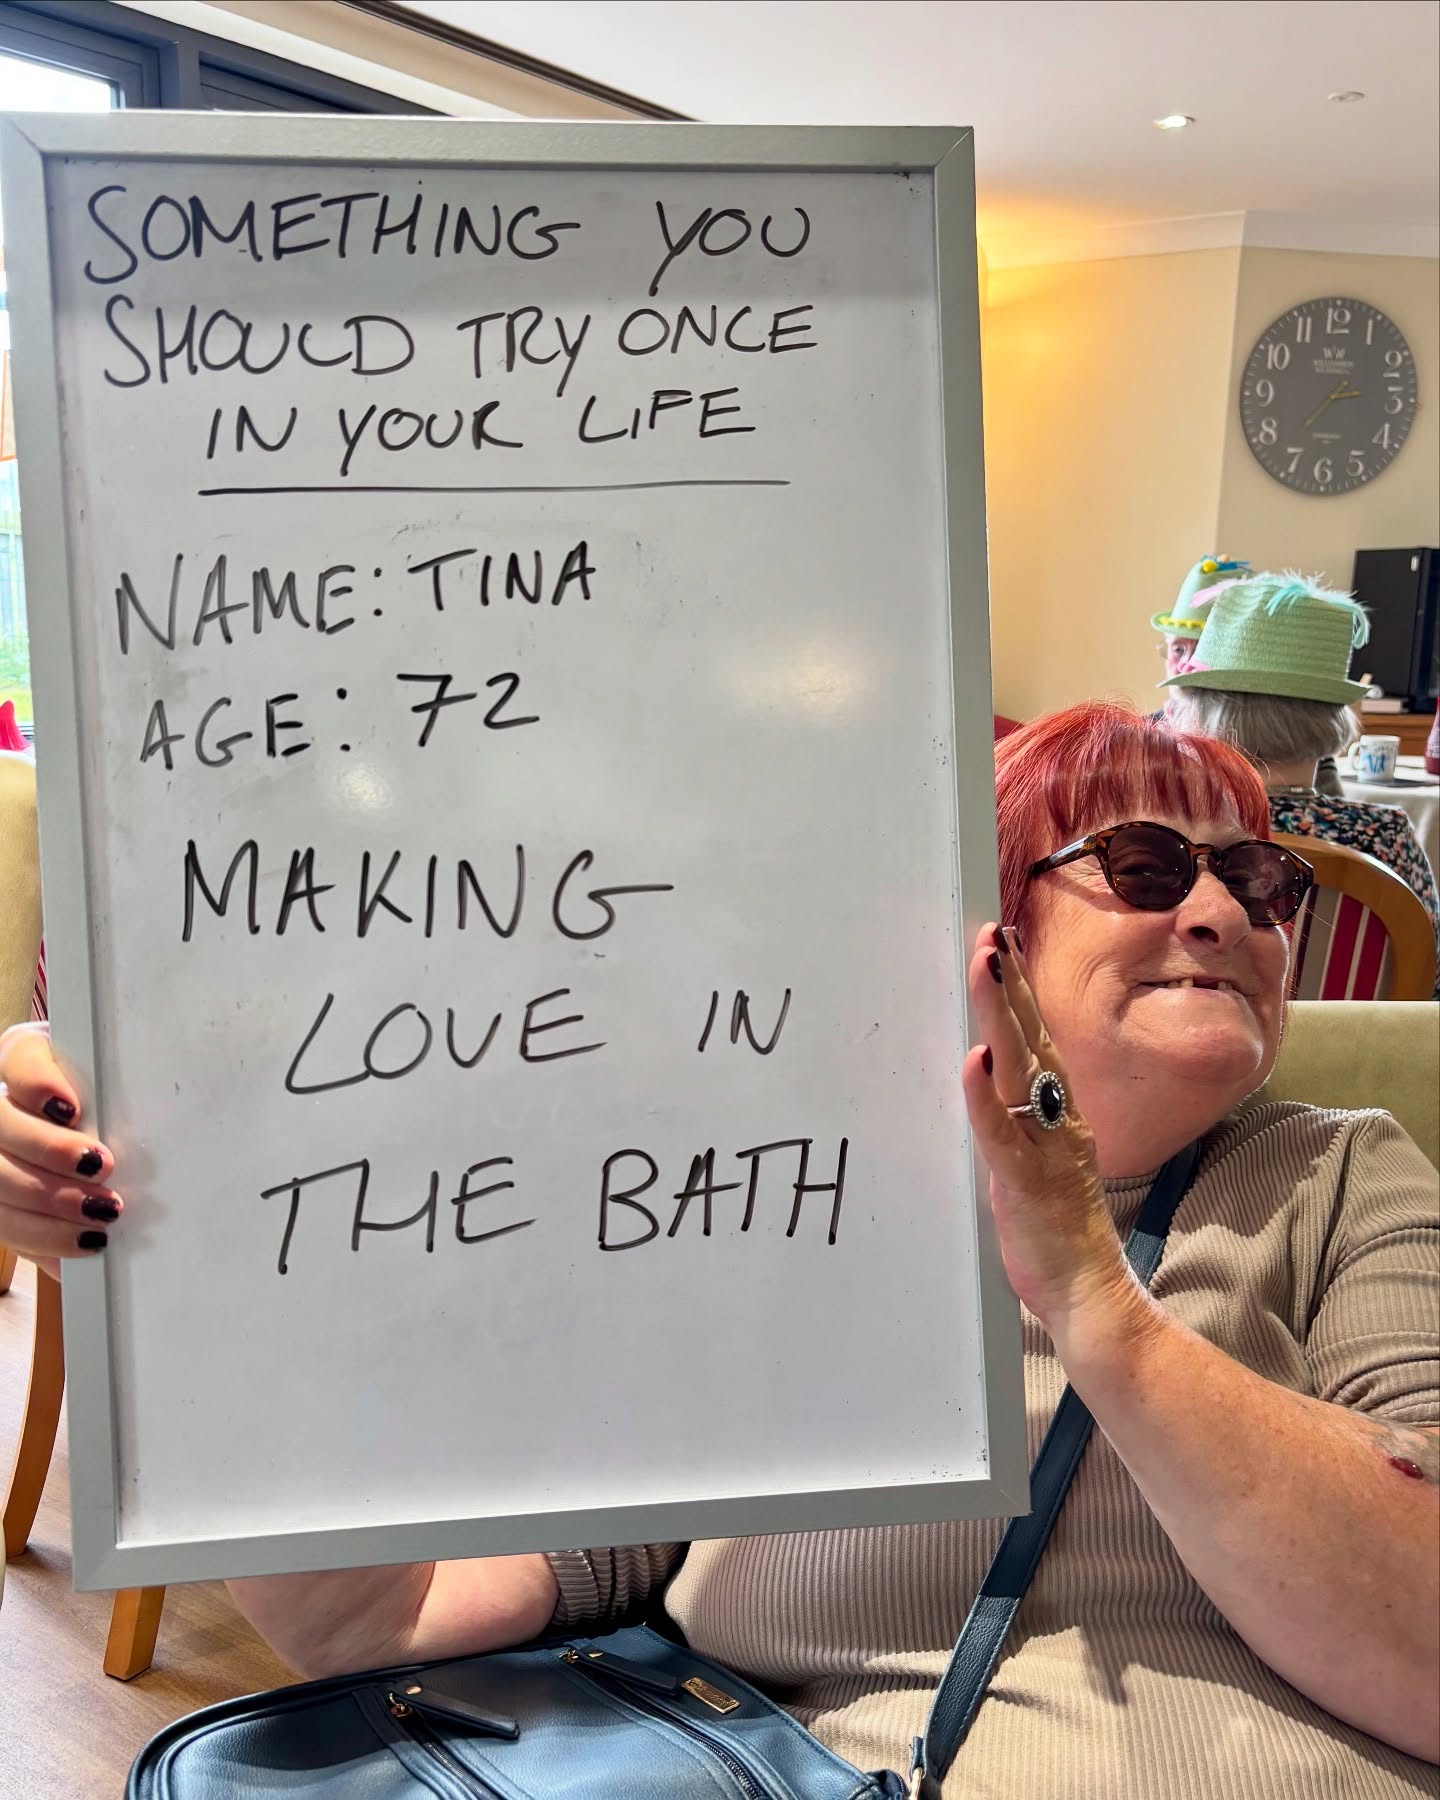 SOMETHING YOU
SHOULD TRY ONCE
IN YOUR LIFE
NAME: TINA
AGE: 72
MAKING
LOVE IN
THE BATH
12
1
2
3
4
5
6
7
8
9
10
11